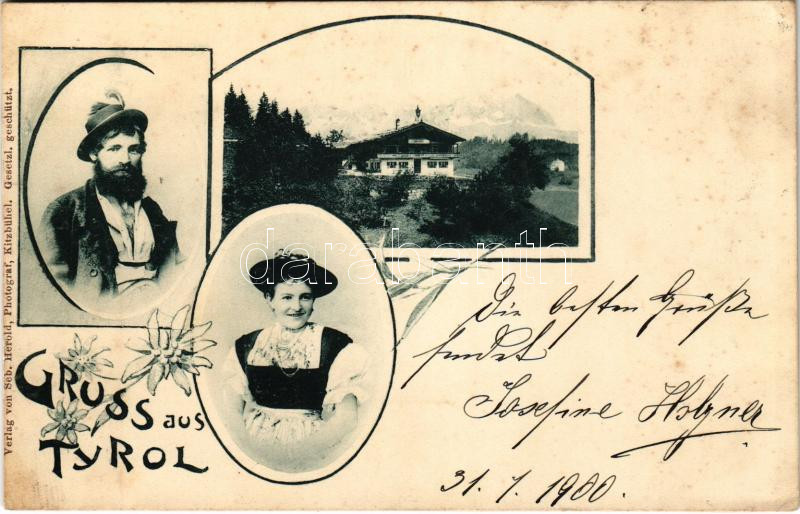 Verlag von Seb. Herold, Photograf, Kitzbühel. Gesetzl. geschützt.
darabanth.com
GRUSS aus
TYROL
Die besten Grüße
sendet
Josefine
31. 1. 1900.